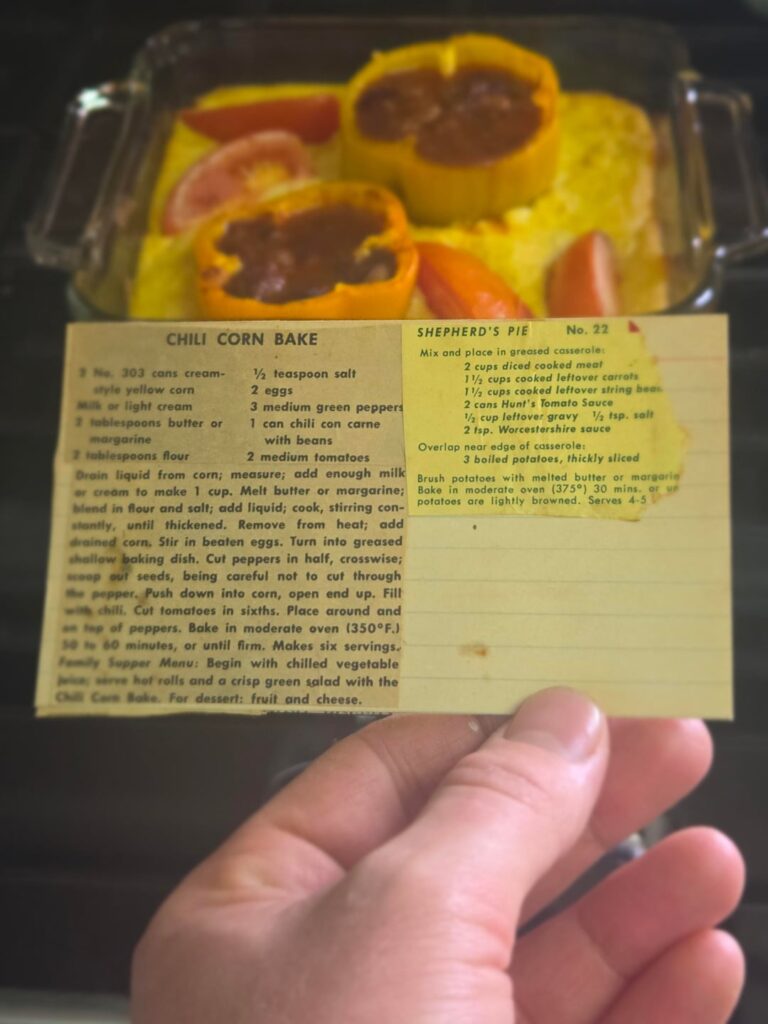 CHILI CORN BAKE
No. 303 cans cream-
style yellow corn
Milk or light cream
2 tablespoons butter or
margarine
2 tablespoons flour
½ teaspoon salt
2 eggs
3 medium green peppers
1 can chili con carne
with beans
2 medium tomatoes
Drain liquid from corn; measure; add enough milk
or cream to make 1 cup. Melt butter or margarine;
blend in flour and salt; add liquid; cook, stirring con-
stantly, until thickened. Remove from heat; add
drained corn. Stir in beaten eggs. Turn into greased
shallow baking dish. Cut peppers in half, crosswise;
scoop out seeds, being careful not to cut through
the pepper. Push down into corn, open end up. Fill
with chili. Cut tomatoes in sixths. Place around and
on top of peppers. Bake in moderate oven (350°F.)
50 to 60 minutes, or until firm. Makes six servings.
Family Supper Menu: Begin with chilled vegetable
juice; serve hot rolls and a crisp green salad with the
Chili Corn Bake. For dessert: fruit and cheese.
SHEPHERD'S PIE No. 22
Mix and place in greased casserole:
2 cups diced cooked meat
1½ cups cooked leftover carrots
1½ cups cooked leftover string bean
2 cans Hunt's Tomato Sauce
½ cup leftover gravy ½ tsp. salt
2 tsp. Worcestershire sauce
Overlap near edge of casserole:
3 boiled potatoes, thickly sliced
Brush potatoes with melted butter or margarine
Bake in moderate oven (375°) 30 mins. or un
potatoes are lightly browned. Serves 4-5